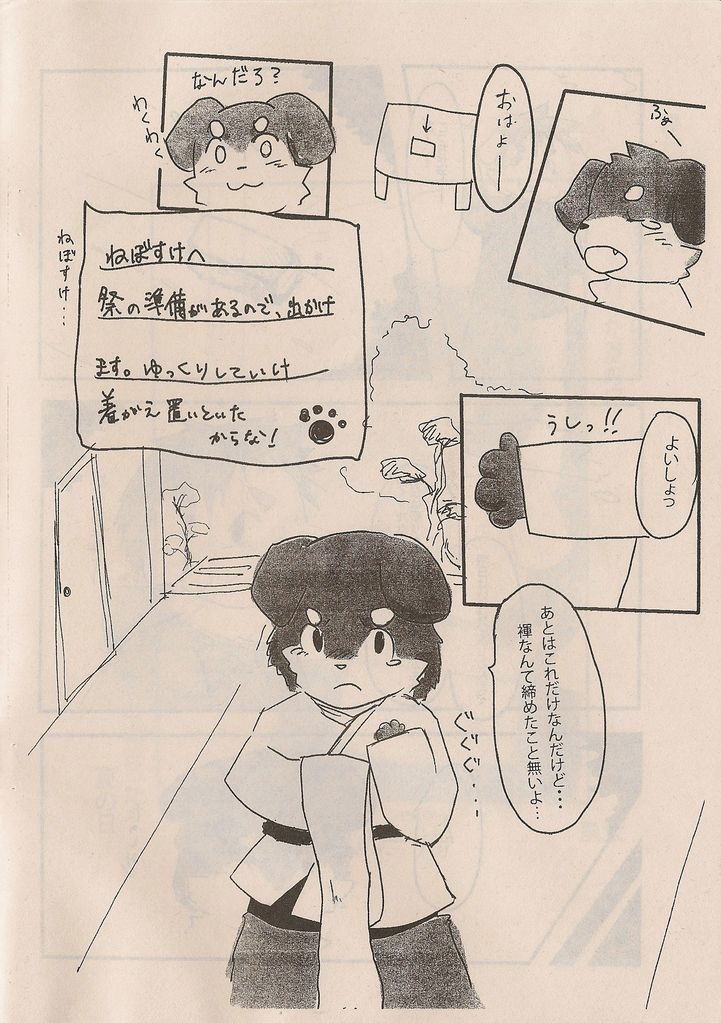 ふぁー
おはよー
なんだろ?
わくわく
ねぼすけへ
祭の準備があるので、出かけ
ます。ゆっくりしていけ
着がえ置いといた
からな!
ねぼすけ・・・
よいしょっ
うしっ!!
あとはこれだけなんだけど・・・
褌なんて締めたこと無いよ…
ぐぐぐ・・・